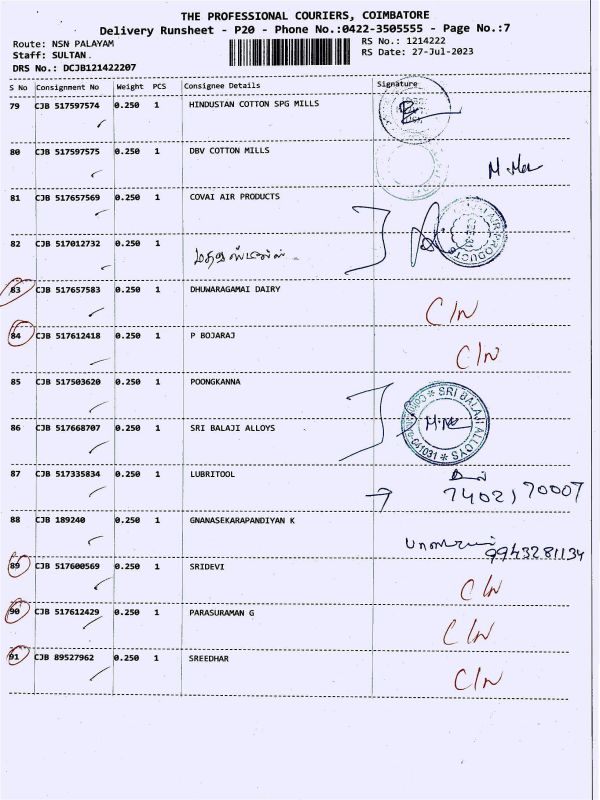 THE PROFESSIONAL COURIERS, COIMBATORE
Delivery Runsheet - P20 - Phone No.:0422-3505555 - Page No.:7
Route: NSN PALAYAM RS No.: 1214222
Staff: SULTAN RS Date: 27-Jul-2023
DRS No.: DCJB121422207
S No Consignment No Weight PCS Consignee Details Signature
79 CJB 517597574 0.250 1 HINDUSTAN COTTON SPG MILLS
80 CJB 517597575 0.250 1 DBV COTTON MILLS
81 CJB 517657569 0.250 1 COVAI AIR PRODUCTS
82 CJB 517012732 0.250 1
83 CJB 517657583 0.250 1 DHUWARAGAMAI DAIRY C/N
84 CJB 517612418 0.250 1 P BOJARAJ C/N
85 CJB 517503620 0.250 1 POONGKANNA
86 CJB 517668707 0.250 1 SRI BALAJI ALLOYS SRI BALAJI ALLOYS
87 CJB 517335834 0.250 1 LUBRITOOL
88 CJB 189240 0.250 1 GNANASEKARAPANDIYAN K 9943281134
89 CJB 517600569 0.250 1 SRIDEVI C/N
90 CJB 517612429 0.250 1 PARASURAMAN G C/N
91 CJB 89527962 0.250 1 SREEDHAR C/N